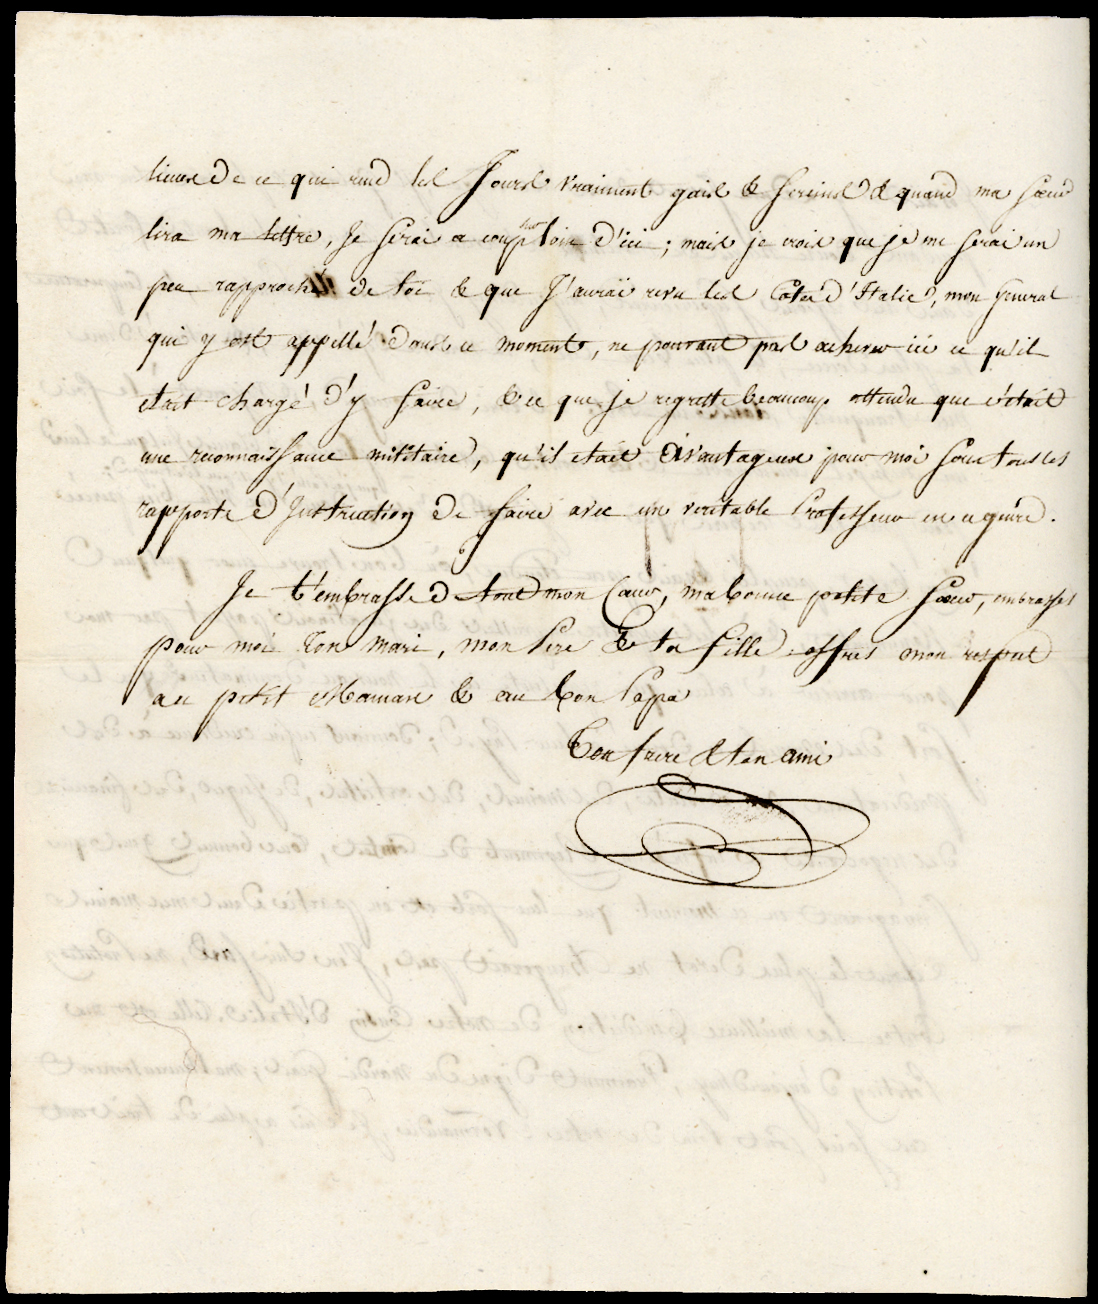 lieues de ce qui rend les Jours vraiment gais & sereins & quand ma Soeur
lira ma lettre, Je serai a coup sur loin d'ici; mais je crois que je me serai un
peu rapproché de toi & que J'aurai revu les Cotes d'Italie, mon General
qui y est appellé dans ce moment, ne pouvant pas achever ici ce qu'il
etait chargé d'y faire, & ce que je regrette beaucoup attendu que c'était
une reconnaissance militaire, qu'il etait avantageux pour moi sous tous les
rapports d'Instruction de faire avec un veritable Professeur en ce genre.
Je t'embrasse de tout mon Coeur, ma bonne petite Soeur, embrasses
pour moi ton mari, mon Pere & ta fille. offres mon respect
au petit Maman & au bon Papa
Ton frere & ton ami